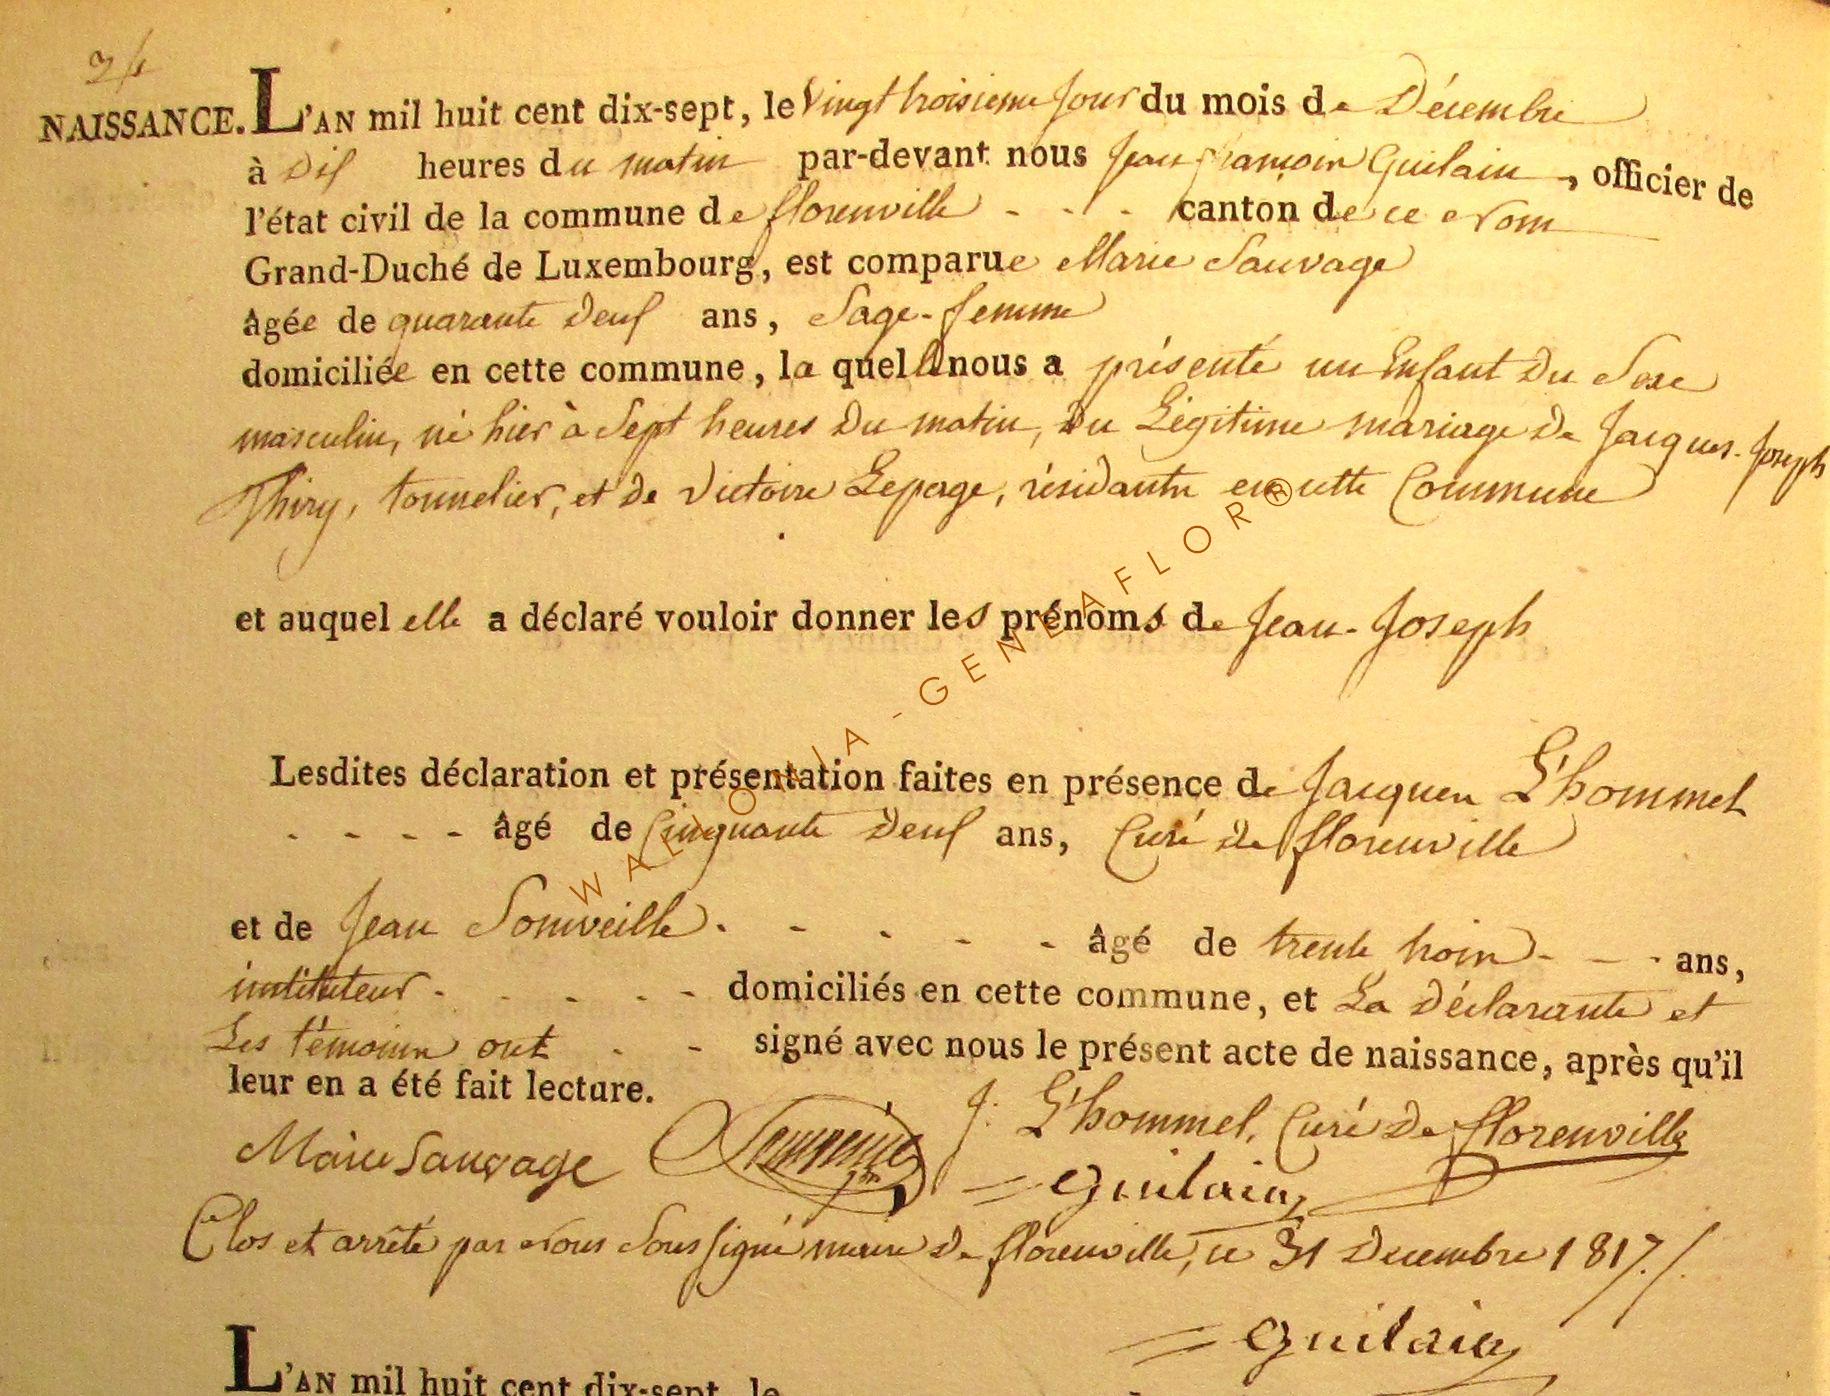 24
NAISSANCE. L'AN mil huit cent dix-sept, le Vingt troisieme jour du mois de Décembre
à dix heures du matin par-devant nous Jean françois Guilain, officier de
l'état civil de la commune de florenville - - - canton de ce Nom
Grand-Duché de Luxembourg, est comparue Marie Sauvage
âgée de quarante deux ans, Sage-femme
domiciliée en cette commune, la quelle nous a présenté un Enfant du Sexe
masculin, né hier à Sept heures du matin, du Légitime mariage de Jacques-Joseph
Thiry, tonnelier, et de Victoire Lepage, résidants en cette Commune
et auquel elle a déclaré vouloir donner les prénoms de Jean-Joseph
Lesdites déclaration et présentation faites en présence de Jacques L'hommel
- - - - âgé de Cinquante deux ans, Curé de florenville
et de Jean Somveille - - - - - âgé de trente trois - - - ans,
instituteur - - - - - domiciliés en cette commune, et La déclarante et
Les témoins ont - - signé avec nous le présent acte de naissance, après qu'il
leur en a été fait lecture.
Marie Sauvage J. L'hommel, Curé de florenville
Guilain
Clos et arrêté par Nous Soussigné maire de florenville, ce 31 Decembre 1817./.
Guilain
L'AN mil huit cent dix-sept, le
WALLONIA-GENEAFLOR®